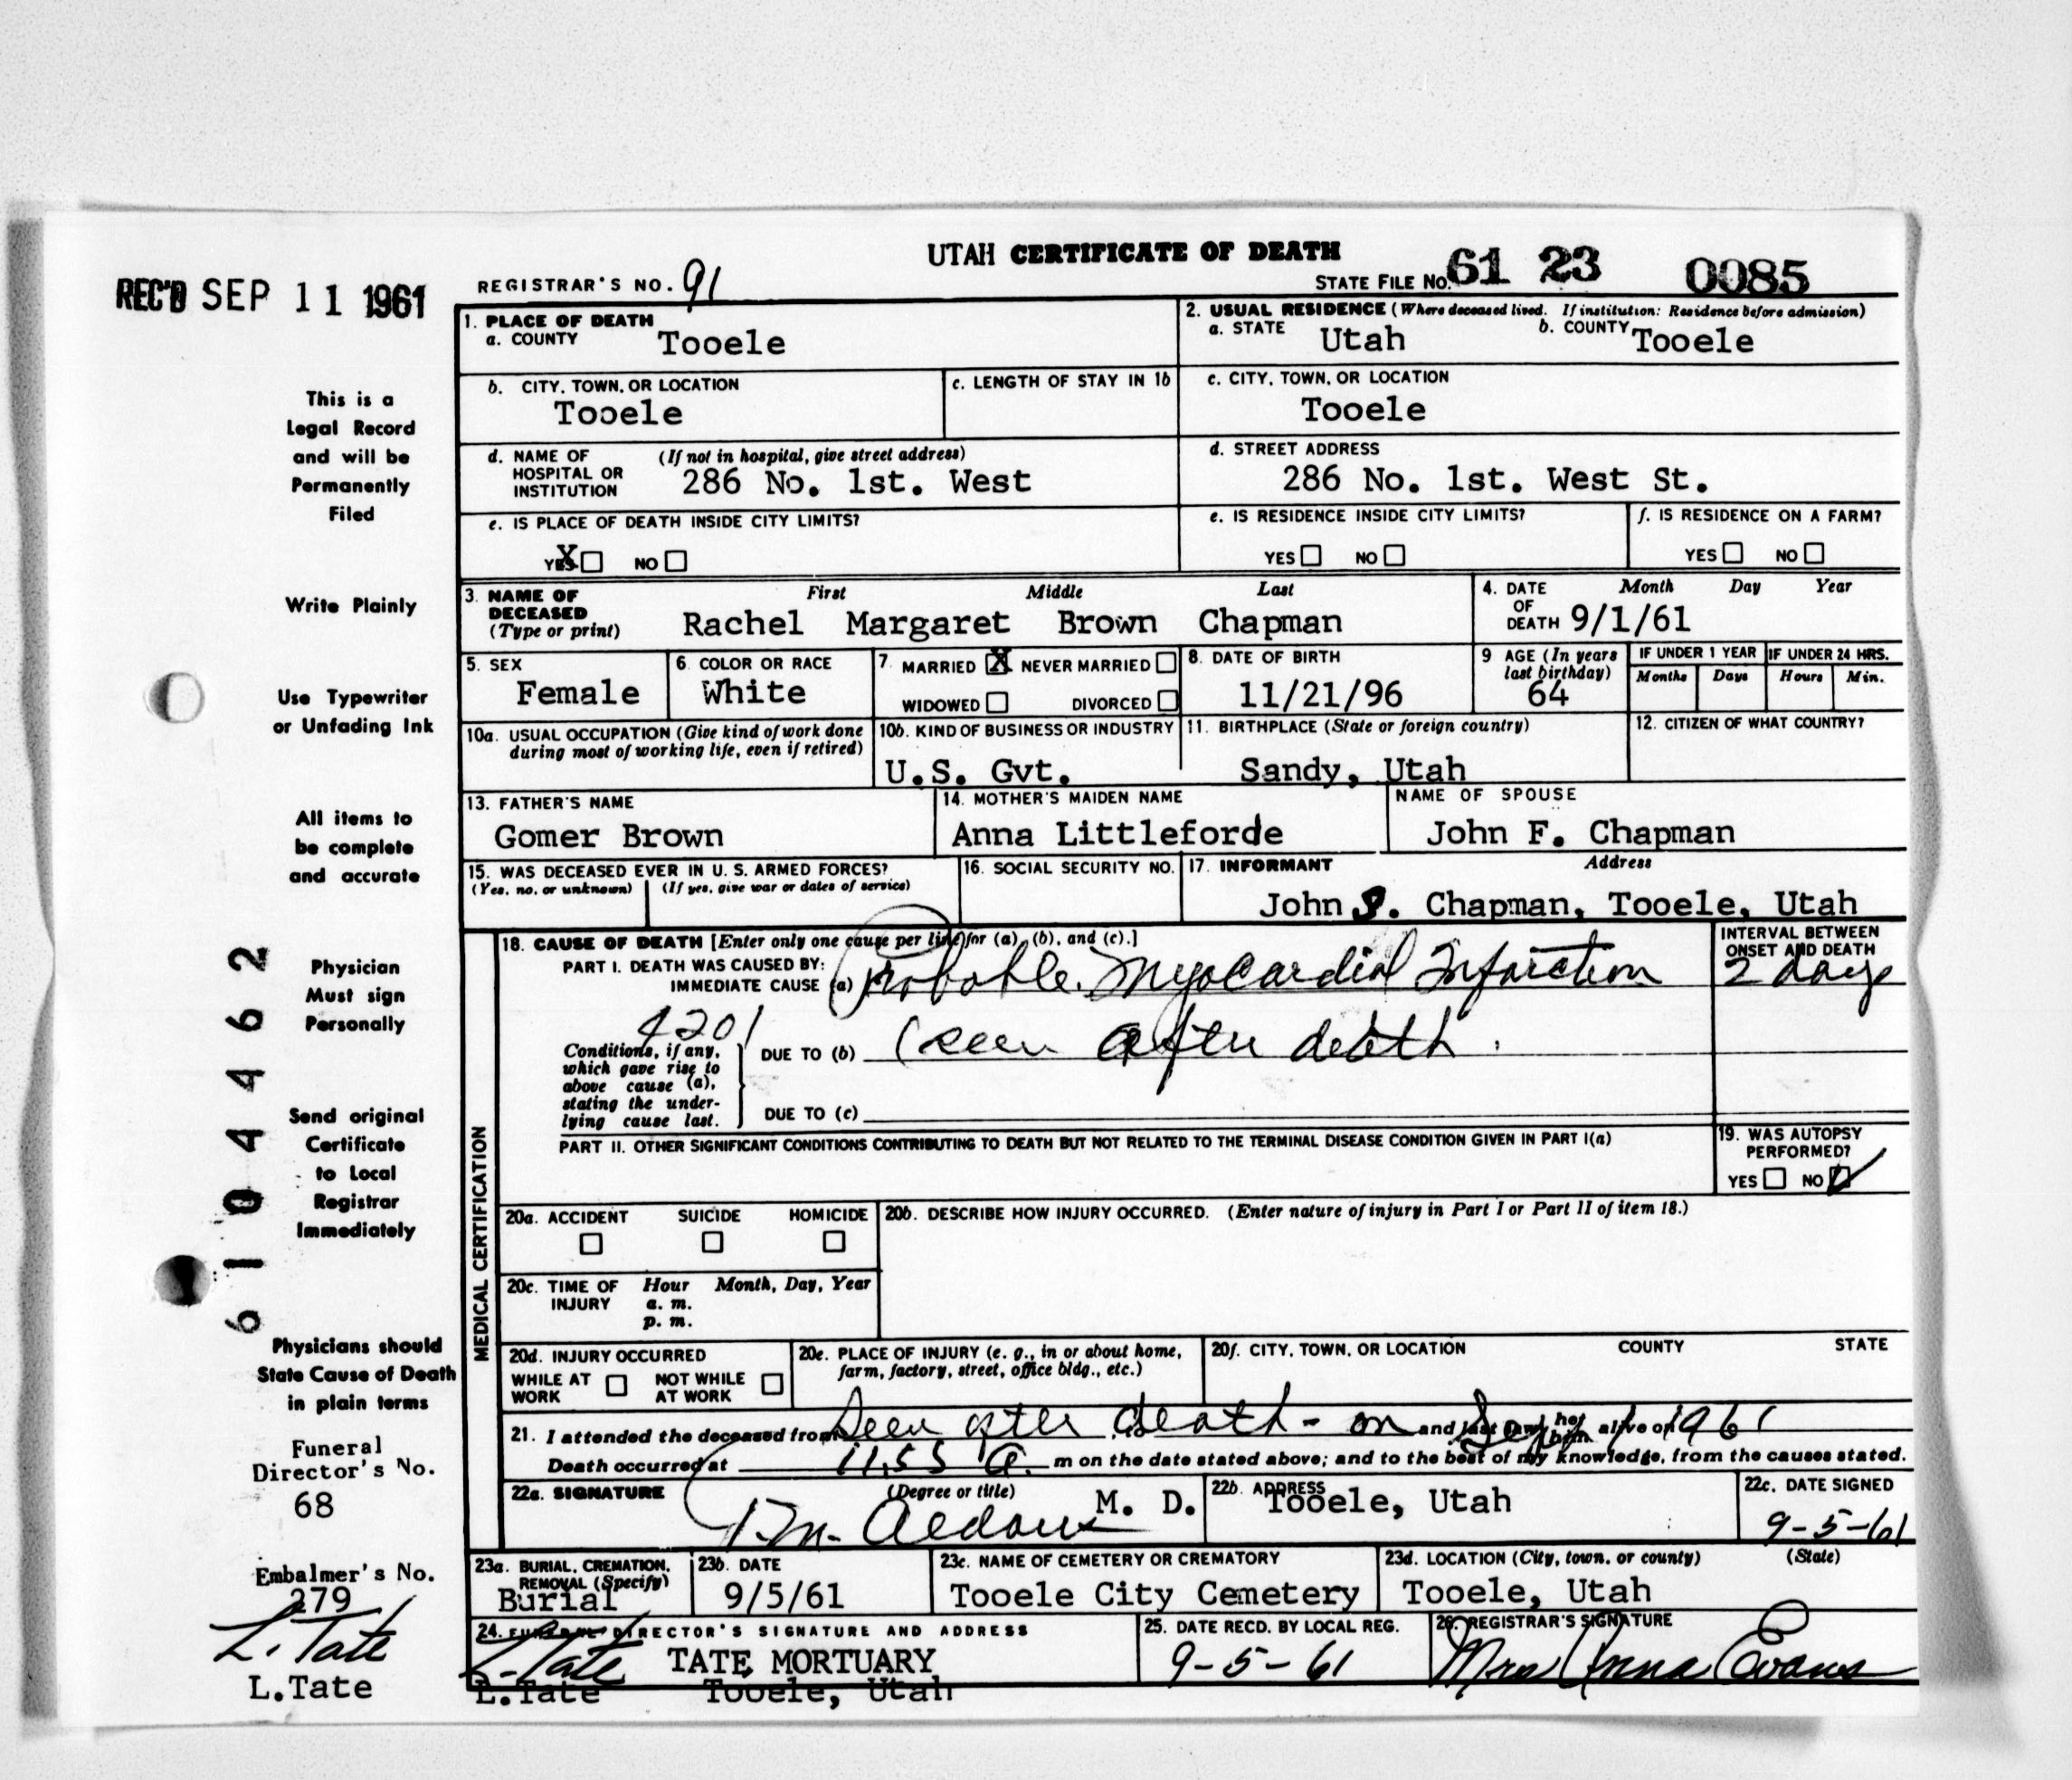 UTAH CERTIFICATE OF DEATH
REC'D SEP 11 1961
REGISTRAR'S NO. 91
STATE FILE NO. 61 23 0085
This is a
Legal Record
and will be
Permanently
Filed
Write Plainly
Use Typewriter
or Unfading Ink
All items to
be complete
and accurate
Physician
Must sign
Personally
Send original
Certificate
to Local
Registrar
Immediately
Physicians should
State Cause of Death
in plain terms
61044462
Funeral
Director's No.
68
Embalmer's No.
279
L. Tate
L.Tate
1. PLACE OF DEATH
a. COUNTY Tooele
2. USUAL RESIDENCE (Where deceased lived. If institution: Residence before admission)
a. STATE Utah b. COUNTY Tooele
b. CITY, TOWN, OR LOCATION
Tooele
c. LENGTH OF STAY IN 1b
c. CITY, TOWN, OR LOCATION
Tooele
d. NAME OF HOSPITAL OR INSTITUTION (If not in hospital, give street address)
286 No. 1st. West
d. STREET ADDRESS
286 No. 1st. West St.
e. IS PLACE OF DEATH INSIDE CITY LIMITS?
YES X NO
e. IS RESIDENCE INSIDE CITY LIMITS?
YES NO
f. IS RESIDENCE ON A FARM?
YES NO
3. NAME OF DECEASED (Type or print) First Middle Last
Rachel Margaret Brown Chapman
4. DATE OF DEATH Month Day Year
9/1/61
5. SEX
Female
6. COLOR OR RACE
White
7. MARRIED X NEVER MARRIED
WIDOWED DIVORCED
8. DATE OF BIRTH
11/21/96
9 AGE (In years last birthday)
64
IF UNDER 1 YEAR
Months Days
IF UNDER 24 HRS.
Hours Min.
10a. USUAL OCCUPATION (Give kind of work done during most of working life, even if retired)
10b. KIND OF BUSINESS OR INDUSTRY
U.S. Gvt.
11. BIRTHPLACE (State or foreign country)
Sandy, Utah
12. CITIZEN OF WHAT COUNTRY?
13. FATHER'S NAME
Gomer Brown
14. MOTHER'S MAIDEN NAME
Anna Littleforde
NAME OF SPOUSE
John F. Chapman
15. WAS DECEASED EVER IN U. S. ARMED FORCES?
(Yes, no, or unknown) (If yes, give war or dates of service)
16. SOCIAL SECURITY NO.
17. INFORMANT Address
John Chapman, Tooele, Utah
MEDICAL CERTIFICATION
18. CAUSE OF DEATH [Enter only one cause per line for (a), (b), and (c).]
INTERVAL BETWEEN ONSET AND DEATH
PART I. DEATH WAS CAUSED BY:
IMMEDIATE CAUSE (a) Probable Myocardial Infarction 2 days
4201
Conditions, if any, which gave rise to above cause (a), stating the underlying cause last.
DUE TO (b) (seen after death.
DUE TO (c)
PART II. OTHER SIGNIFICANT CONDITIONS CONTRIBUTING TO DEATH BUT NOT RELATED TO THE TERMINAL DISEASE CONDITION GIVEN IN PART I(a)
19. WAS AUTOPSY PERFORMED?
YES NO
20a. ACCIDENT SUICIDE HOMICIDE
20b. DESCRIBE HOW INJURY OCCURRED. (Enter nature of injury in Part I or Part II of item 18.)
20c. TIME OF INJURY Hour Month, Day, Year
a. m.
p. m.
20d. INJURY OCCURRED
WHILE AT WORK NOT WHILE AT WORK
20e. PLACE OF INJURY (e. g., in or about home, farm, factory, street, office bldg., etc.)
20f. CITY, TOWN, OR LOCATION COUNTY STATE
21. I attended the deceased from Seen after death - on and last saw her him alive on Sept 1 1961
Death occurred at 11:55 a. m on the date stated above; and to the best of my knowledge, from the causes stated.
22a. SIGNATURE (Degree or title)
M. D.
22b. ADDRESS
Tooele, Utah
22c. DATE SIGNED
9-5-61
23a. BURIAL, CREMATION, REMOVAL (Specify)
Burial
23b. DATE
9/5/61
23c. NAME OF CEMETERY OR CREMATORY
Tooele City Cemetery
23d. LOCATION (City, town, or county) (State)
Tooele, Utah
24. FUNERAL DIRECTOR'S SIGNATURE AND ADDRESS
L. Tate TATE MORTUARY
L.Tate Tooele, Utah
25. DATE RECD. BY LOCAL REG.
9-5-61
26. REGISTRAR'S SIGNATURE
Mrs Anna Evans